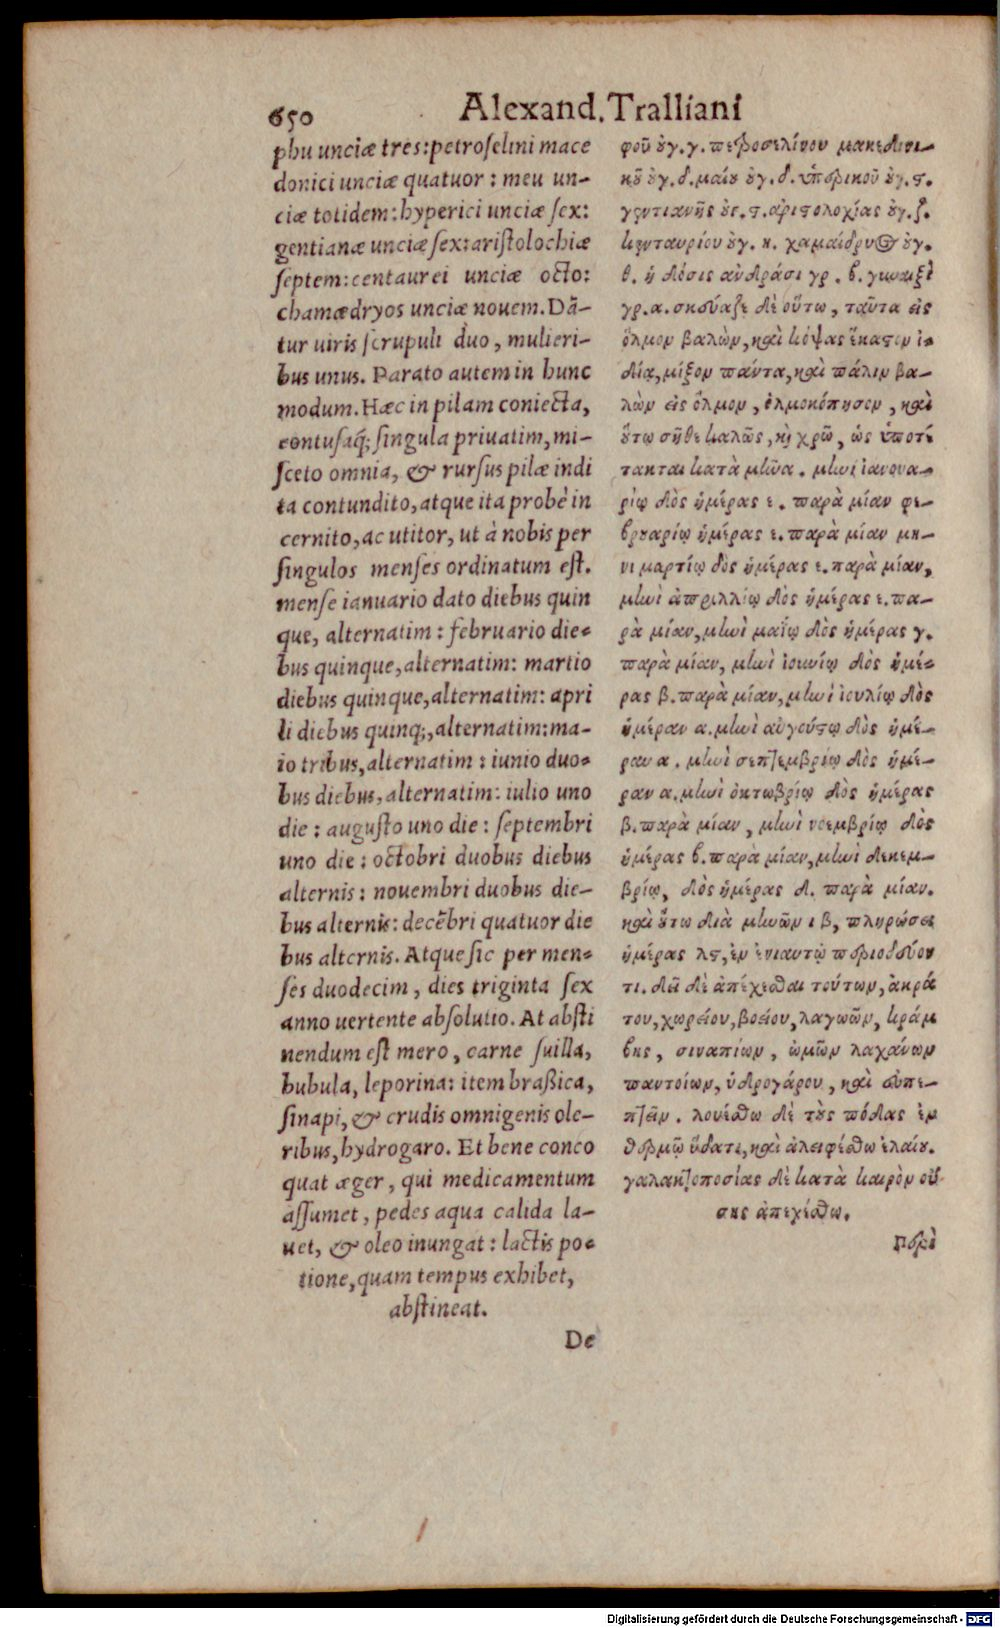 650
Alexand. Tralliani
phu unciæ tres: petroſelini mace
donici unciæ quatuor: meu un-
ciæ totidem: hyperici unciæ ſex:
gentianæ unciæ ſex: ariſtolochiæ
ſeptem: centaurei unciæ octo:
chamædryos unciæ nouem. Dā-
tur uiris ſcrupuli duo, mulieri-
bus unus. Parato autem in hunc
modum. Hæc in pilam coniecta,
contuſaq́; ſingula priuatim, mi-
ſceto omnia, & rurſus pilæ indi
ta contundito, atque ita probè in
cernito, ac utitor, ut à nobis per
ſingulos menſes ordinatum eſt.
menſe ianuario dato diebus quin
que, alternatim: februario die-
bus quinque, alternatim: martio
diebus quinque, alternatim: apri
li diebus quinq;, alternatim: ma-
io tribus, alternatim: iunio duo-
bus diebus, alternatim: iulio uno
die: auguſto uno die: ſeptembri
uno die: octobri duobus diebus
alternis: nouembri duobus die-
bus alternis: decēbri quatuor die
bus alternis. Atque ſic per men-
ſes duodecim, dies triginta ſex
anno uertente abſoluito. At abſti
nendum eſt mero, carne ſuilla,
bubula, leporina: item braßica,
ſinapi, & crudis omnigenis ole-
ribus, hydrogaro. Et bene conco
quat æger, qui medicamentum
aſſumet, pedes aqua calida la-
uet, & oleo inungat: lactis po-
tione, quam tempus exhibet,
abſtineat.
De
φοῦ οὐγ. γ. πετροσελίνου μακεδονι-
κοῦ οὐγ. δ. μαίου οὐγ. δ. ὑπερικοῦ οὐγ. ϛ.
γεντιανῆς οὐγ. ϛ. ἀριστολοχίας οὐγ. ζ.
κενταυρίου οὐγ. η. χαμαίδρυος οὐγ.
θ. ἡ δόσις ἀνδράσι γρ. β. γυναιξὶ
γρ. α. σκεύαζε δὲ οὕτω, ταῦτα εἰς
ὅλμον βαλὼν, καὶ κόψας ἕκαστον ἰ-
δίᾳ, μίξον πάντα, καὶ πάλιν βα-
λὼν εἰς ὅλμον, ὁλμοκόπησον, καὶ
οὕτω σῆθε καλῶς, καὶ χρῶ, ὡς ὑποτέ
τακται κατὰ μῆνα. μηνὶ ἰανουα-
ρίῳ δὸς ἡμέρας ε. παρὰ μίαν φε-
βρουαρίῳ ἡμέρας ε. παρὰ μίαν μη-
νὶ μαρτίῳ δὸς ἡμέρας ε. παρὰ μίαν,
μηνὶ ἀπριλλίῳ δὸς ἡμέρας ε. πα-
ρὰ μίαν, μηνὶ μαΐῳ δὸς ἡμέρας γ.
παρὰ μίαν, μηνὶ ἰουνίῳ δὸς ἡμέ-
ρας β. παρὰ μίαν, μηνὶ ἰουλίῳ δὸς
ἡμέραν α. μηνὶ αὐγούστῳ δὸς ἡμέ-
ραν α. μηνὶ σεπτεμβρίῳ δὸς ἡμέ-
ραν α. μηνὶ ὀκτωβρίῳ δὸς ἡμέρας
β. παρὰ μίαν, μηνὶ νοεμβρίῳ δὸς
ἡμέρας β. παρὰ μίαν, μηνὶ δεκεμ-
βρίῳ, δὸς ἡμέρας δ. παρὰ μίαν.
καὶ οὕτω διὰ μηνῶν ιβ, πληρώσει
ἡμέρας λϛ, ἐν ἐνιαυτῷ περιοδεύον
τι. δεῖ δὲ ἀπέχεσθαι τούτων, ἀκρά
του, χωρείου, βοείου, λαγωῶν, κράμ
βης, σιναπίων, ὠμῶν λαχάνων
παντοίων, ὑδρογάρου, καὶ εὐπε-
πτεῖν. λουέσθω δὲ τοὺς πόδας ἐν
θερμῷ ὕδατι, καὶ ἀλειφέσθω ἐλαίου.
γαλακτοποσίας δὲ κατὰ καιρὸν οὔ-
σης ἀπεχέσθω.
Περὶ
Digitalisierung gefördert durch die Deutsche Forschungsgemeinschaft - DFG